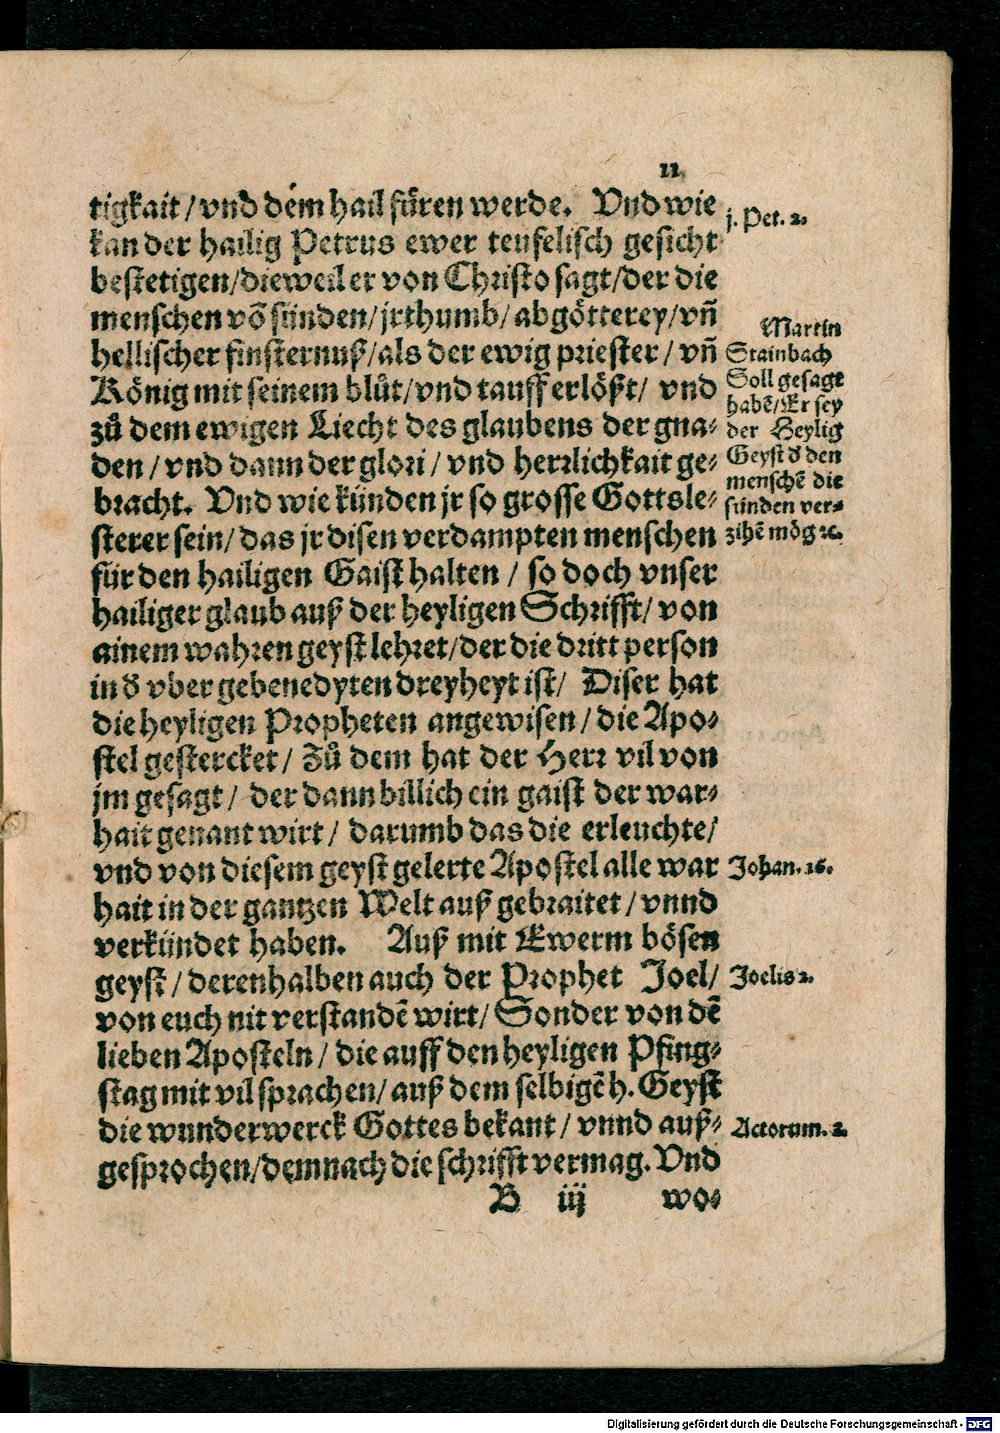 11.
tigkait/ vnd dem hail füren werde. Vnd wie
kan der hailig Petrus ewer teufelisch gesicht
bestetigen/dieweil er von Christo sagt/der die
menschen võ sünden/jrthumb/ abgötterey/vñ
hellischer finsternuß/als der ewig priester/ vñ
König mit seinem blůt/vnd tauff erlößt/ vnd
zů dem ewigen Liecht des glaubens der gna-
den/ vnd dann der glori/ vnd herrlichkait ge-
bracht. Vnd wie künden jr so grosse Gottsle-
sterer sein/ das jr disen verdampten menschen
für den hailigen Gaist halten/ so doch vnser
hailiger glaub auß der heyligen Schrifft/ von
ainem wahren geyst lehret/der die dritt person
in d̕ vber gebenedyten dreyheyt ist/ Diser hat
die heyligen Propheten angewisen/ die Apo-
stel gestercket/ Zů dem hat der Herr vil von
jm gesagt/ der dann billich ein gaist der war-
hait genant wirt/ darumb das die erleuchte/
vnd von diesem geyst gelerte Apostel alle war
hait in der gantzen Welt auß gebraitet/ vnnd
verkündet haben. Auß mit Ewerm bösen
geyst/ derenhalben auch der Prophet Joel/
von euch nit verstandẽ wirt/ Sonder von dẽ
lieben Aposteln/ die auff den heyligen Pfing-
stag mit vil sprachen/ auß dem selbigẽ h. Geyst
die wunderwerck Gottes bekant/ vnnd auß-
gesprochen/demnach die schrifft vermag. Vnd
B iij wo-
j. Pet. 2.
Martin
Stainbach
Soll gesagt
habẽ/Er sey
der Heylig
Geyst d̕ den
menschẽ die
sünden ver-
zihẽ mög ꝛc.
Johan. 16.
Joelis 2.
Actorum. 2.
Digitalisierung gefördert durch die Deutsche Forschungsgemeinschaft - DFG